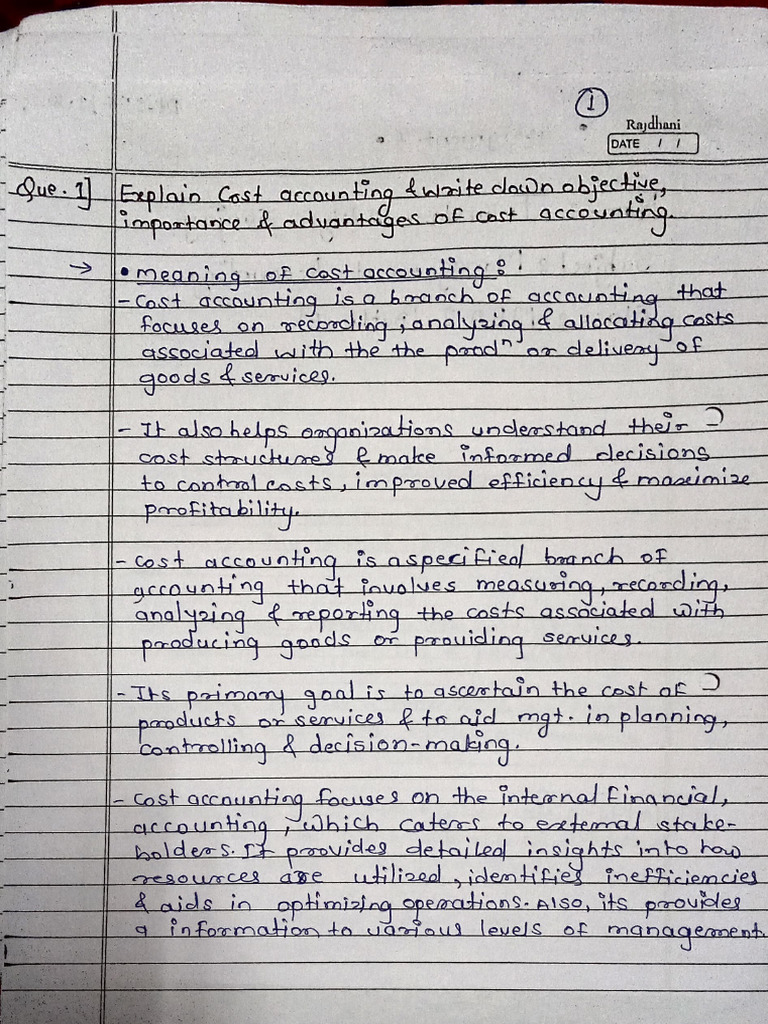 1
Rajdhani
DATE / /
Que. 1] Explain Cost accounting & write down objective,
importance & advantages of cost accounting.
→ • meaning of cost accounting :
- Cost accounting is a branch of accounting that
focuses on recording, analyzing & allocating costs
associated with the the prodⁿ or delivery of
goods & services.
- It also helps organizations understand their
cost structures & make informed decisions
to control costs, improved efficiency & maximize
profitability.
- Cost accounting is a specified branch of
accounting that involves measuring, recording,
analyzing & reporting the costs associated with
producing goods or providing services.
- Its primary goal is to ascertain the cost of
products or services & to aid mgt. in planning,
controlling & decision-making.
- Cost accounting focuses on the internal financial,
accounting, which caters to external stake-
holders. It provides detailed insights into how
resources are utilized, identifies inefficiencies
& aids in optimizing operations. Also, its provides
a information to various levels of management.